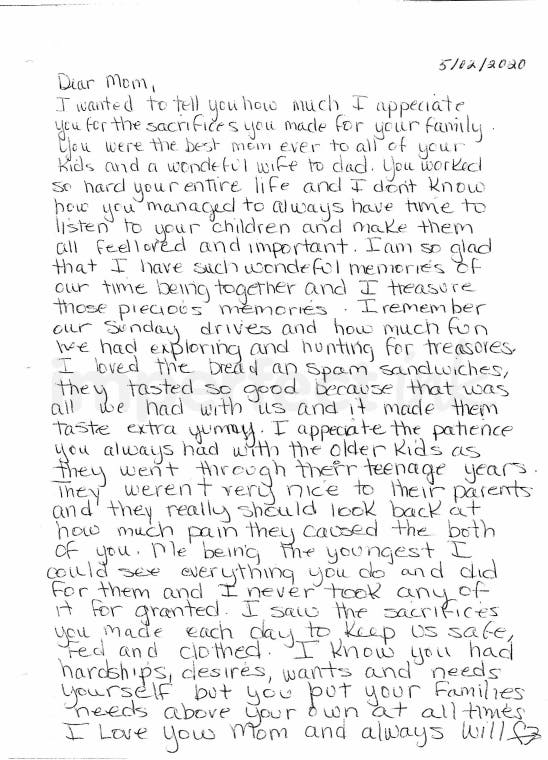 5/02/2020
Dear Mom,
I wanted to tell you how much I appeciate
you for the sacrifices you made for your family.
You were the best mom ever to all of your
kids and a wondeful wife to dad. You worked
so hard your entire life and I don't know
how you managed to always have time to
listen to your children and make them
all feel loved and important. I am so glad
that I have such wondeful memories of
our time being together and I treasure
those piecious memories. I remember
our Sunday drives and how much fun
we had exploring and hunting for treasores.
I loved the bread an spam sandwiches,
they tasted so good because that was
all we had with us and it made them
taste extra yummy. I appeciate the patience
you always had with the older kids as
they went through their teenage years.
They weren't very nice to their parents
and they really should look back at
how much pain they caused the both
of you. Me being the youngest I
could see everything you do and did
for them and I never took any of
it for granted. I saw the sacrifices
you made each day to keep us safe,
fed and clothed. I know you had
hardships, desires, wants and needs
yourself but you put your families
needs above your own at all times
I Love you Mom and always will